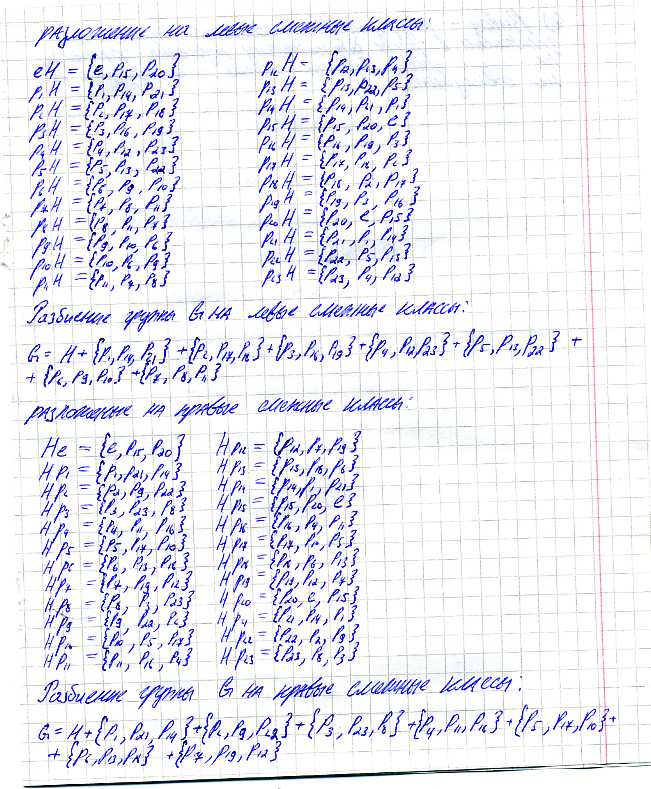 разложение на левые смежные классы:
eH = {e, p15, p20}
p1H = {p1, p14, p21}
p2H = {p2, p17, p18}
p3H = {p3, p16, p19}
p4H = {p4, p12, p23}
p5H = {p5, p13, p22}
p6H = {p6, p9, p10}
p7H = {p7, p8, p11}
p8H = {p8, p11, p7}
p9H = {p9, p10, p6}
p10H = {p10, p6, p9}
p11H = {p11, p7, p8}
p12H = {p12, p23, p4}
p13H = {p13, p22, p5}
p14H = {p14, p21, p1}
p15H = {p15, p20, e}
p16H = {p16, p19, p3}
p17H = {p17, p18, p2}
p18H = {p18, p2, p17}
p19H = {p19, p3, p16}
p20H = {p20, e, p15}
p21H = {p21, p1, p14}
p22H = {p22, p5, p13}
p23H = {p23, p4, p12}
Разбиение группы G на левые смежные классы:
G = H + {p1, p14, p21} + {p2, p17, p18} + {p3, p16, p19} + {p4, p12, p23} + {p5, p13, p22} +
+ {p6, p9, p10} + {p7, p8, p11}
разложение на правые смежные классы:
He = {e, p15, p20}
Hp1 = {p1, p21, p14}
Hp2 = {p2, p9, p22}
Hp3 = {p3, p23, p8}
Hp4 = {p4, p11, p16}
Hp5 = {p5, p17, p10}
Hp6 = {p6, p13, p18}
Hp7 = {p7, p19, p12}
Hp8 = {p8, p3, p23}
Hp9 = {p9, p22, p2}
Hp10 = {p10, p5, p17}
Hp11 = {p11, p16, p4}
Hp12 = {p12, p7, p19}
Hp13 = {p13, p18, p6}
Hp14 = {p14, p1, p21}
Hp15 = {p15, p20, e}
Hp16 = {p16, p4, p11}
Hp17 = {p17, p10, p5}
Hp18 = {p18, p6, p13}
Hp19 = {p19, p12, p7}
Hp20 = {p20, e, p15}
Hp21 = {p21, p14, p1}
Hp22 = {p22, p2, p9}
Hp23 = {p23, p8, p3}
Разбиение группы G на правые смежные классы:
G = H + {p1, p21, p14} + {p2, p9, p22} + {p3, p23, p8} + {p4, p11, p16} + {p5, p17, p10} +
+ {p6, p13, p18} + {p7, p19, p12}